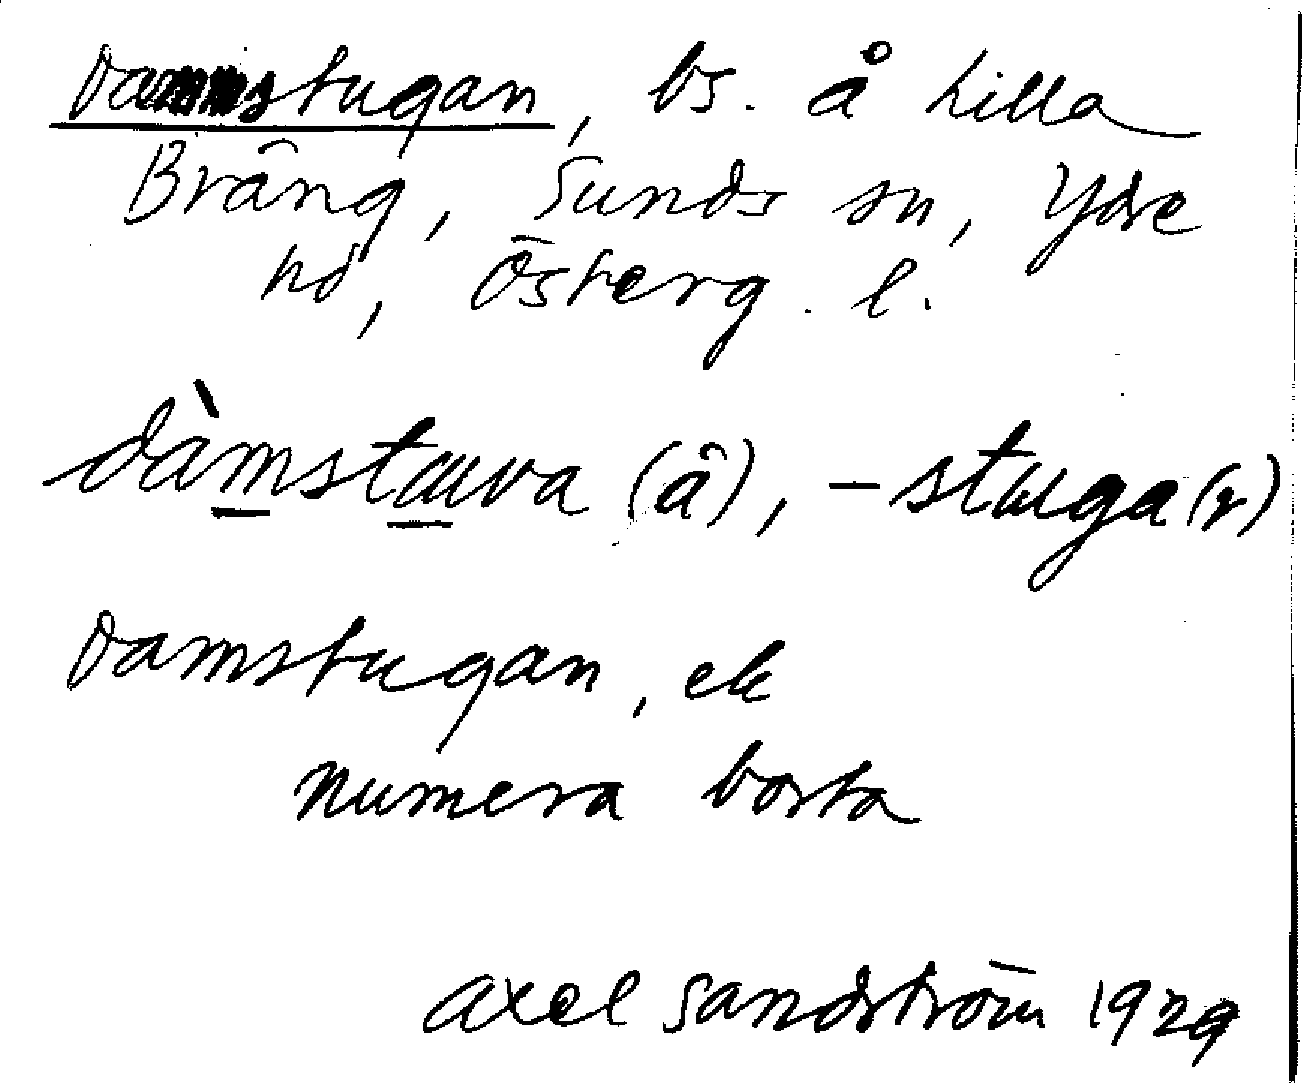 Damstugan, bs. å Lilla
Bräng, Sunds sn, Ydre
hd, Österg. l.
dàmstauva (å), -stuga (r)
Damstugan, ek
numera borta
Axel Sandström 1929